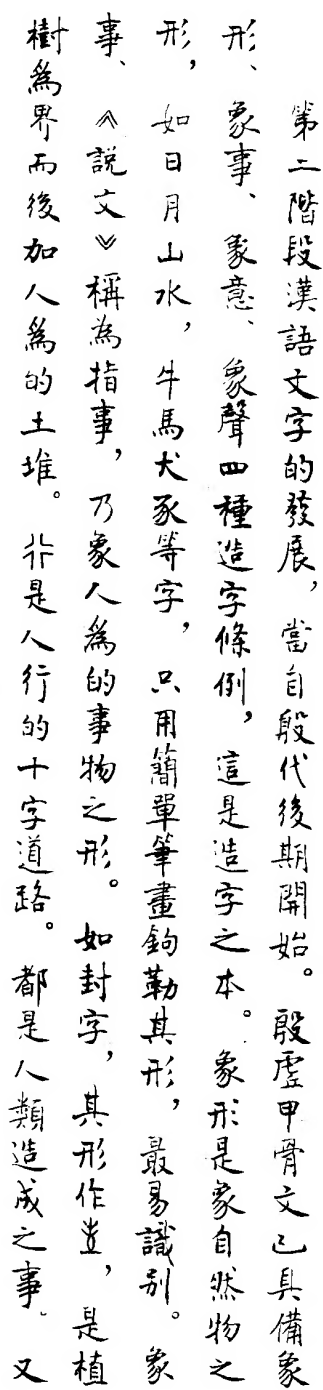 第二階段漢語文字的發展，當自殷代後期開始。殷虛甲骨文已具備象
形、象事、象意、象聲四種造字條例，這是造字之本。象形是象自然物之
形，如日月山水，牛馬犬豕等字，只用簡單筆畫鉤勒其形，最易識別。象
事、《說文》稱為指事，乃象人為的事物之形。如封字，其形作𡉚，是植
樹為界而後加人為的土堆。行是人行的十字道路。都是人類造成之事。又